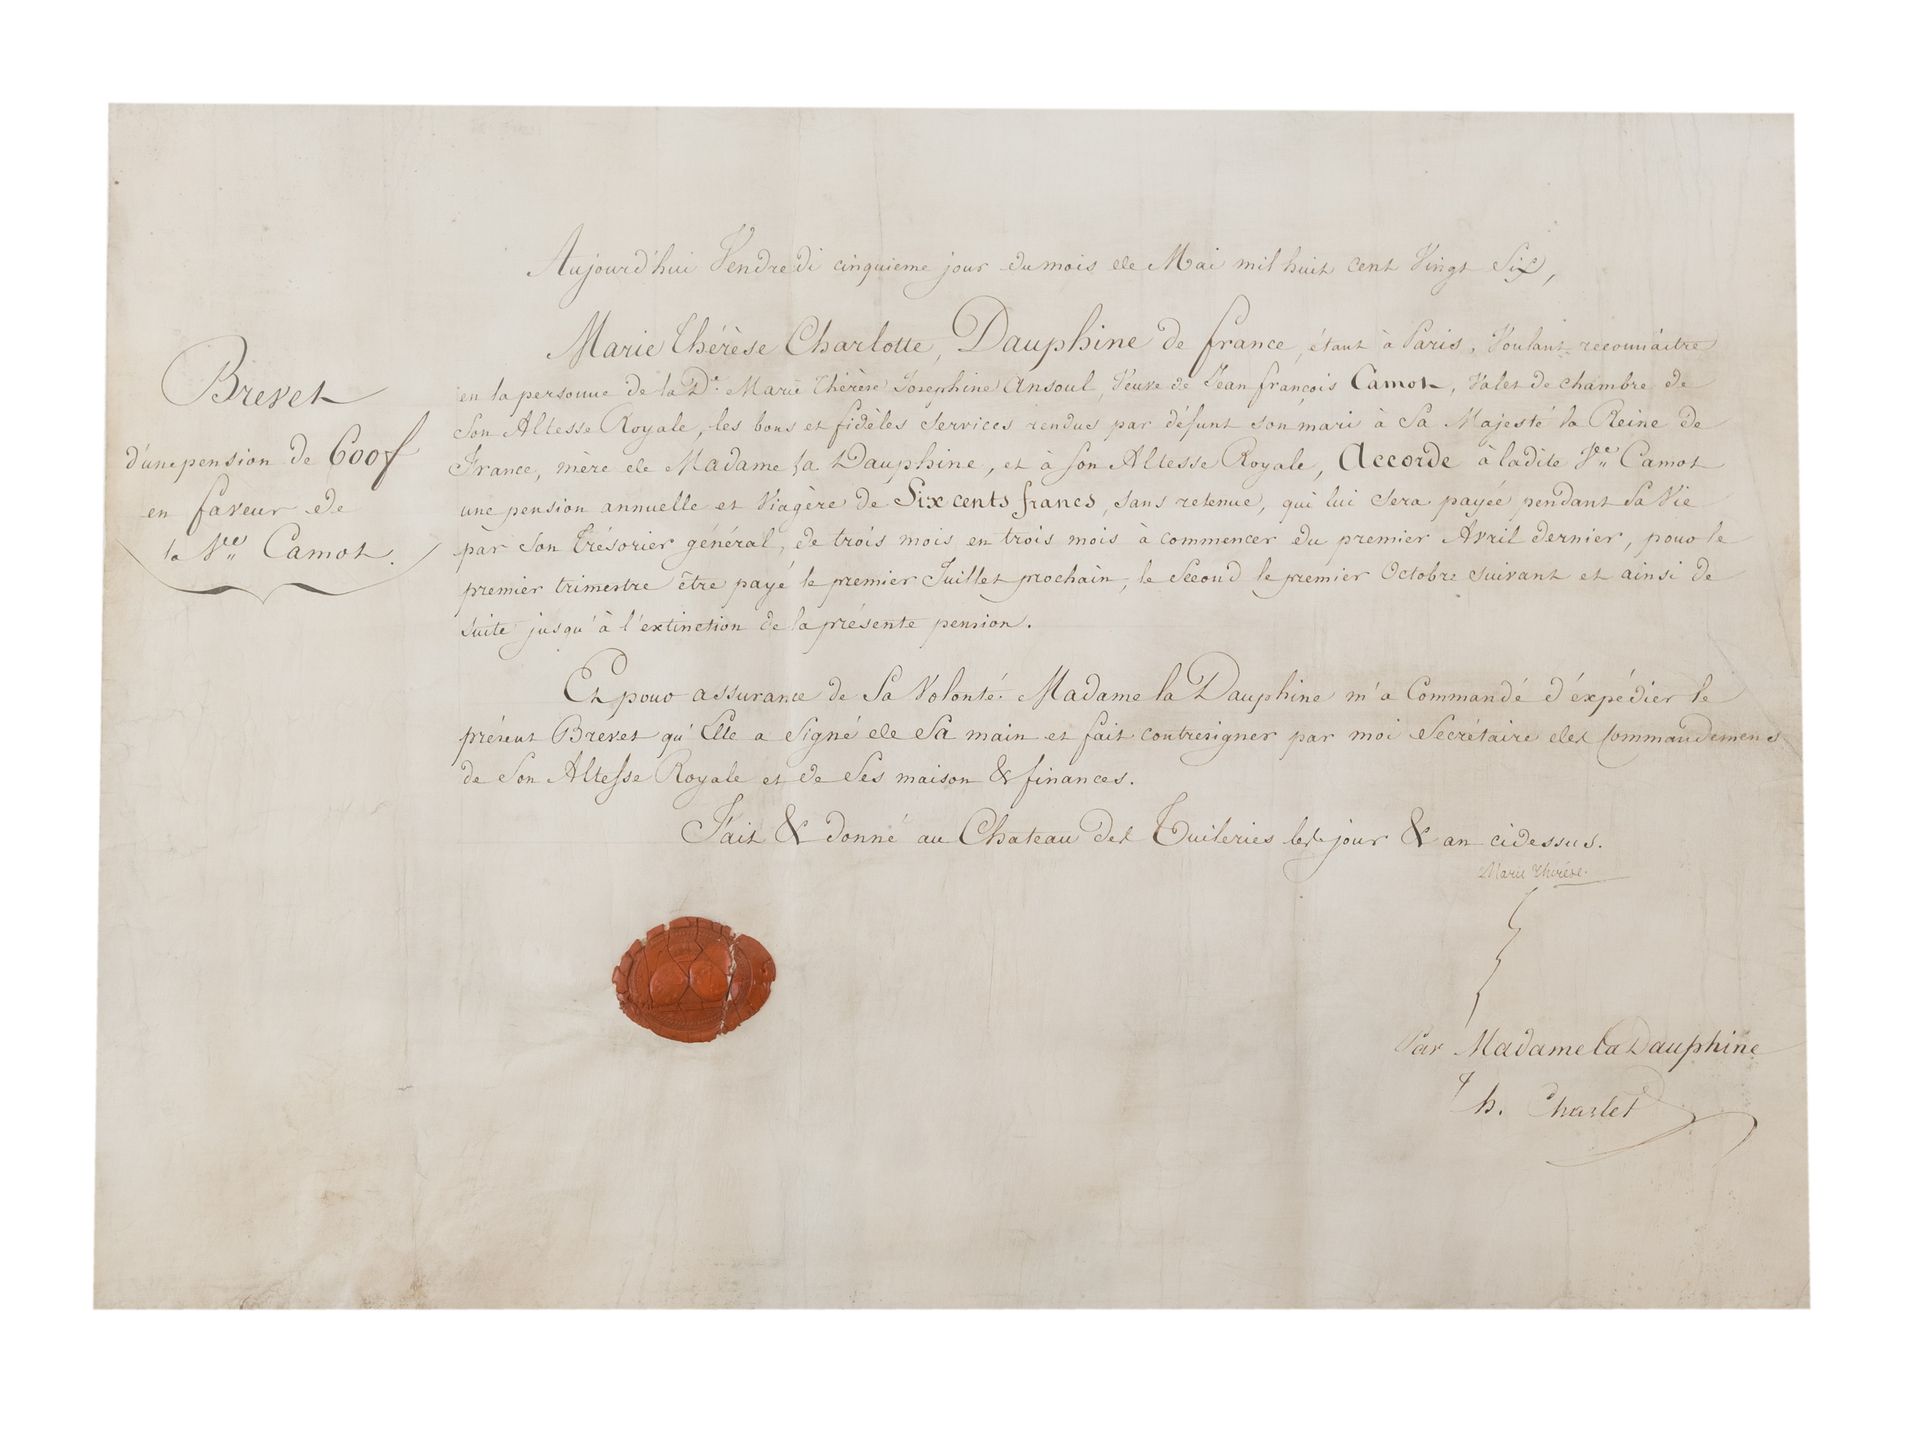 Aujourd'hui Vendredi cinquieme jour du mois de Mai mil huit cent Vingt Six,
Marie Thérèse Charlotte, Dauphine de france, étant à Paris, Voulant reconnaitre
en la personne de la De. Marie Thérèse Josephine Ansoul, Veuve de Jean françois Camot, Valet de chambre de
Son Altesse Royale, les bons et fidèles services rendus par défunt son mari à Sa Majesté la Reine de
France, mère de Madame la Dauphine, et à Son Altesse Royale, Accorde à ladite Vee. Camot
une pension annuelle et Viagère de Six cents francs, sans retenue, qui lui sera payée pendant Sa Vie
par son Trésorier général, de trois mois en trois mois à commencer du premier Avril dernier, pour le
premier trimestre être payé le premier Juillet prochain, le Second le premier Octobre suivant et ainsi de
suite jusqu'à l'extinction de la présente pension.
Et pour assurance de Sa Volonté Madame la Dauphine m'a Commandé d'expédier le
présent Brevet qu'Elle a Signé de Sa main et fait contresigner par moi Secrétaire des Commandemens
de Son Altesse Royale et de Ses maison & finances.
Fait & donné au Chateau des Tuileries les jour & an cidessus.
Marie Thérèse.
Par Madame la Dauphine
Th. Charlet
Brevet
d'une pension de 600f
en faveur de
la Vee. Camot.